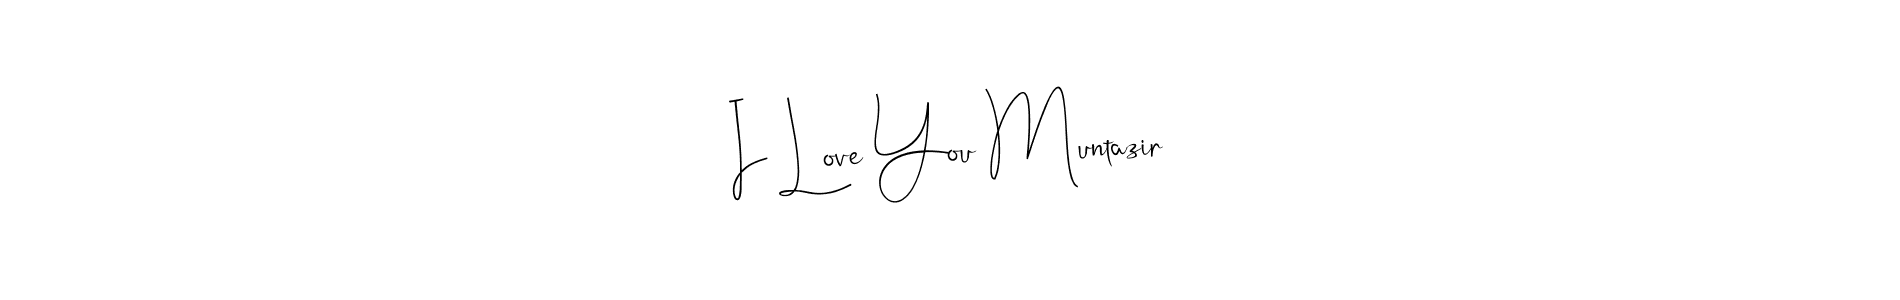 I Love You Muntazir